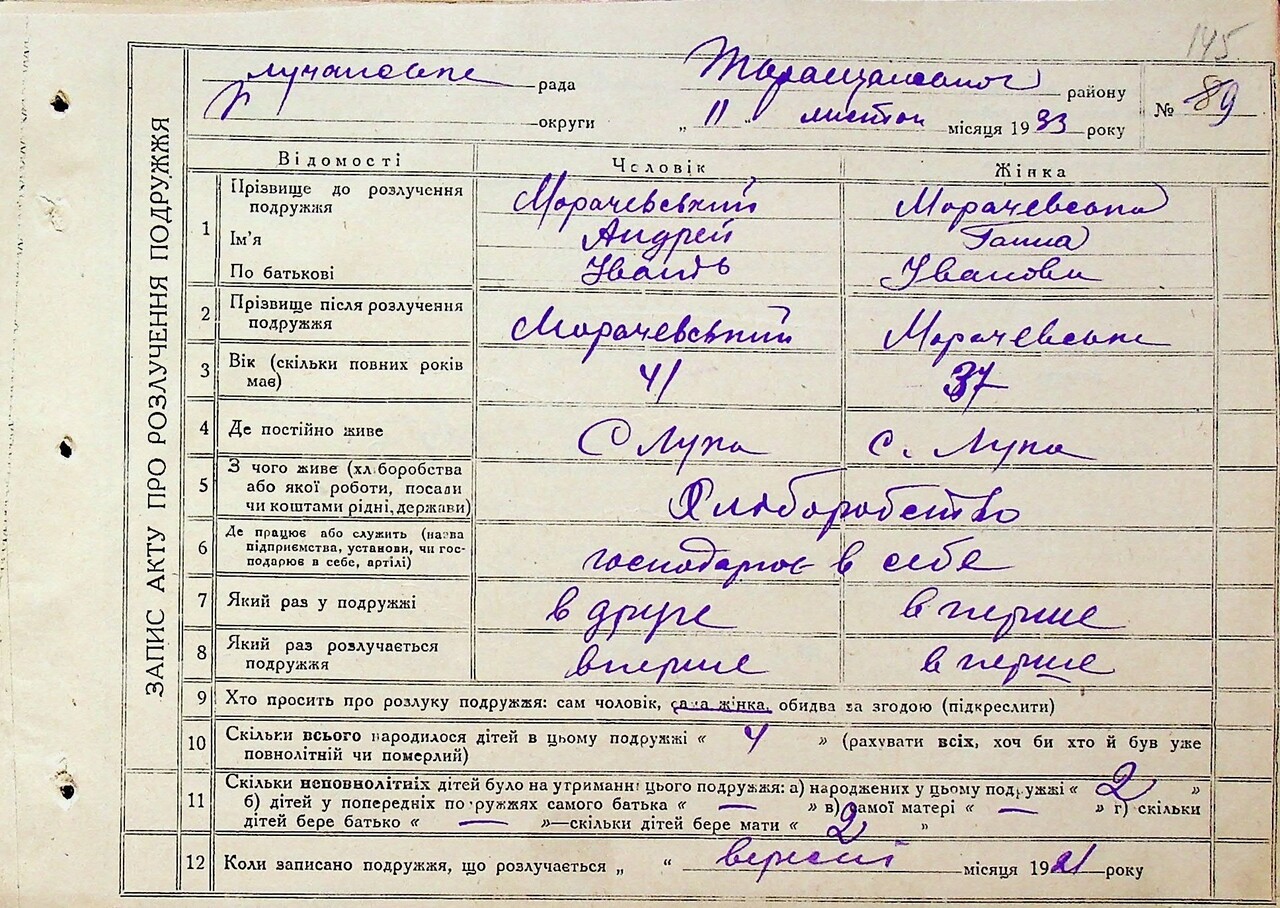 145.
ЗАПИС АКТУ ПРО РОЗЛУЧЕННЯ ПОДРУЖЖЯ
Лучанська рада Таращанського району
округи „ 11 “ листоп місяця 1933 року № 89
Відомості Чсловік Жінка
1 Прізвище до розлучення подружжя Морачевський Морачевська
Ім'я Андрей Ганна
По батькові Іванов Іванови
2 Прізвище після розлучення подружжя Морачевський Морачевська
3 Вік (скільки повних років має) 41 37
4 Де постійно живе С Лука с. Лука
5 З чого живе (хліборобства
або якої роботи, посади Хліборобство
чи коштами рідні, держави)
6 Де працює або служить (назва
підприємства, установи, чи гос- господарює в себе
подарює в себе, артілі)
7 Який раз у подружжі в друге в перше
8 Який раз розлучається подружжя вперше в перше
9 Хто просить про розлуку подружжя: сам чоловік, сама жінка, обидва за згодою (підкреслити)
10 Скільки всього народилося дітей в цьому подружжі « 4 » (рахувати всіх, хоч би хто й був уже
повнолітній чи померлий)
11 Скільки неповнолітніх дітей було на утриманні цього подружжя: а) народжених у цьому подружжі « 2 »
б) дітей у попередніх подружжях самого батька « — » в) самої матері « — » г) скільки
дітей бере батько « — »—скільки дітей бере мати « 2 »
12 Коли записано подружжя, що розлучається „ “ вересні місяця 1921 року